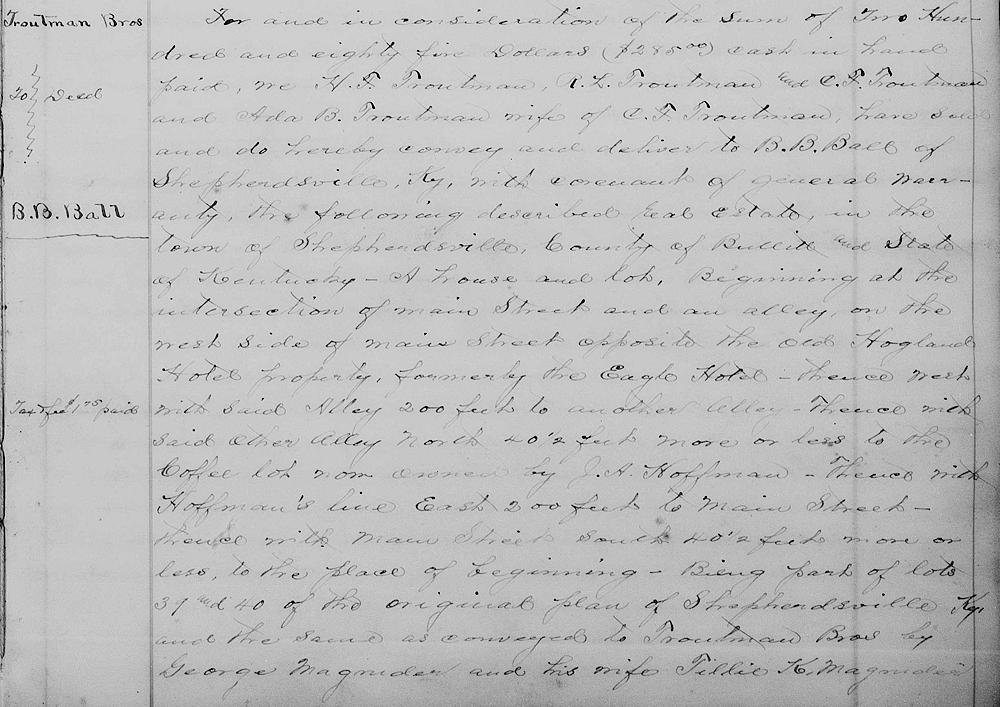 Troutman Bros
To Deed
B.B. Ball
Tax & fee $1.75 paid
For and in consideration of the sum of Two Hun-
dred and eighty five Dollars ($285.00) cash in hand
paid, we H.F. Troutman, R.L. Troutman and C.F. Troutman
and Ada B. Troutman wife of C.F. Troutman, have sold
and do hereby convey and deliver to B.B. Ball of
Shepherdsville, Ky, with covenant of general warr-
anty, the following described real estate, in the
town of Shepherdsville, County of Bullitt and State
of Kentucky - A house and lot, Beginning at the
intersection of main Street and an alley, on the
west side of main Street opposite the old Hogland
Hotel property, formerly the Eagle Hotel - thence west
with said Alley 200 feet to another Alley - Thence with
said other Alley North 40 1/2 feet more or less to the
Coffee lot now owned by J.A. Hoffman - Thence with
Hoffman's line East 200 feet to Main Street -
thence with Main Street South 40 1/2 feet more or
less, to the place of beginning - Bieng part of lots
39 and 40 of the original plan of Shepherdsville Ky.
and the same as conveyed to Troutman Bros by
George Magruder and his wife Tillie K. Magruder